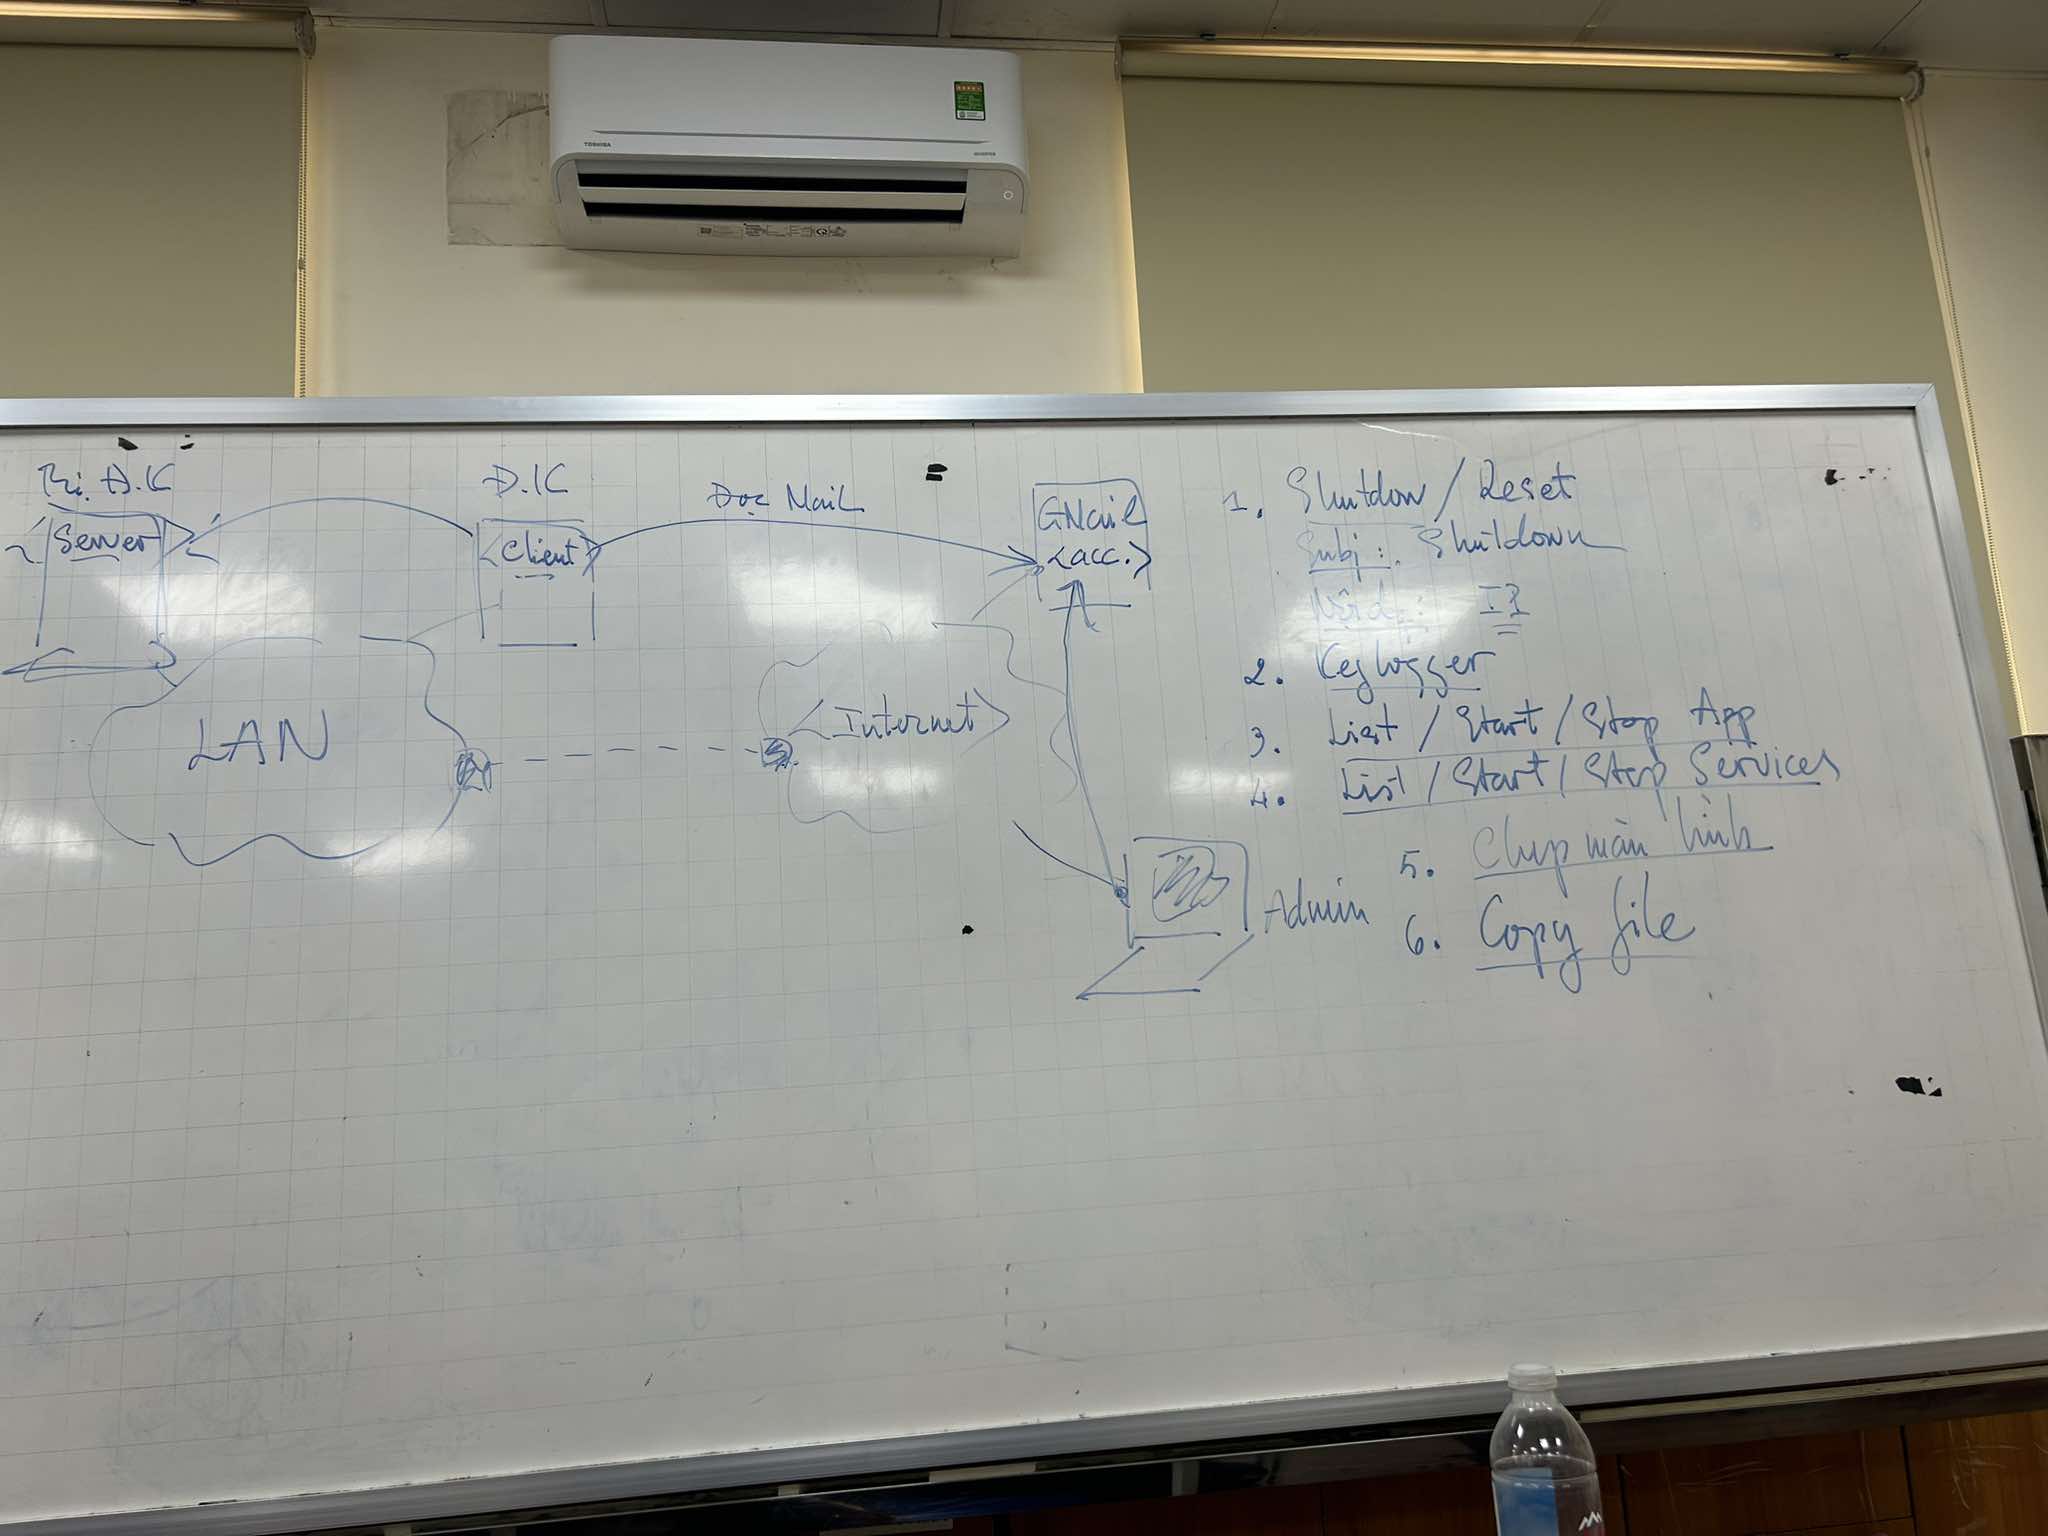 TOSHIBA
INVERTER
Bị. Đ.K
<Server>
Đ.K
<Client>
Đọc Mail
GMail
<acc.>
LAN
<Internet>
Admin
1. Shutdow / Reset
Subj: Shutdown
Nội d: IP
2. Keylogger
3. List / Start / Stop App
4. List / Start / Stop Services
5. Chụp màn hình
6. Copy file